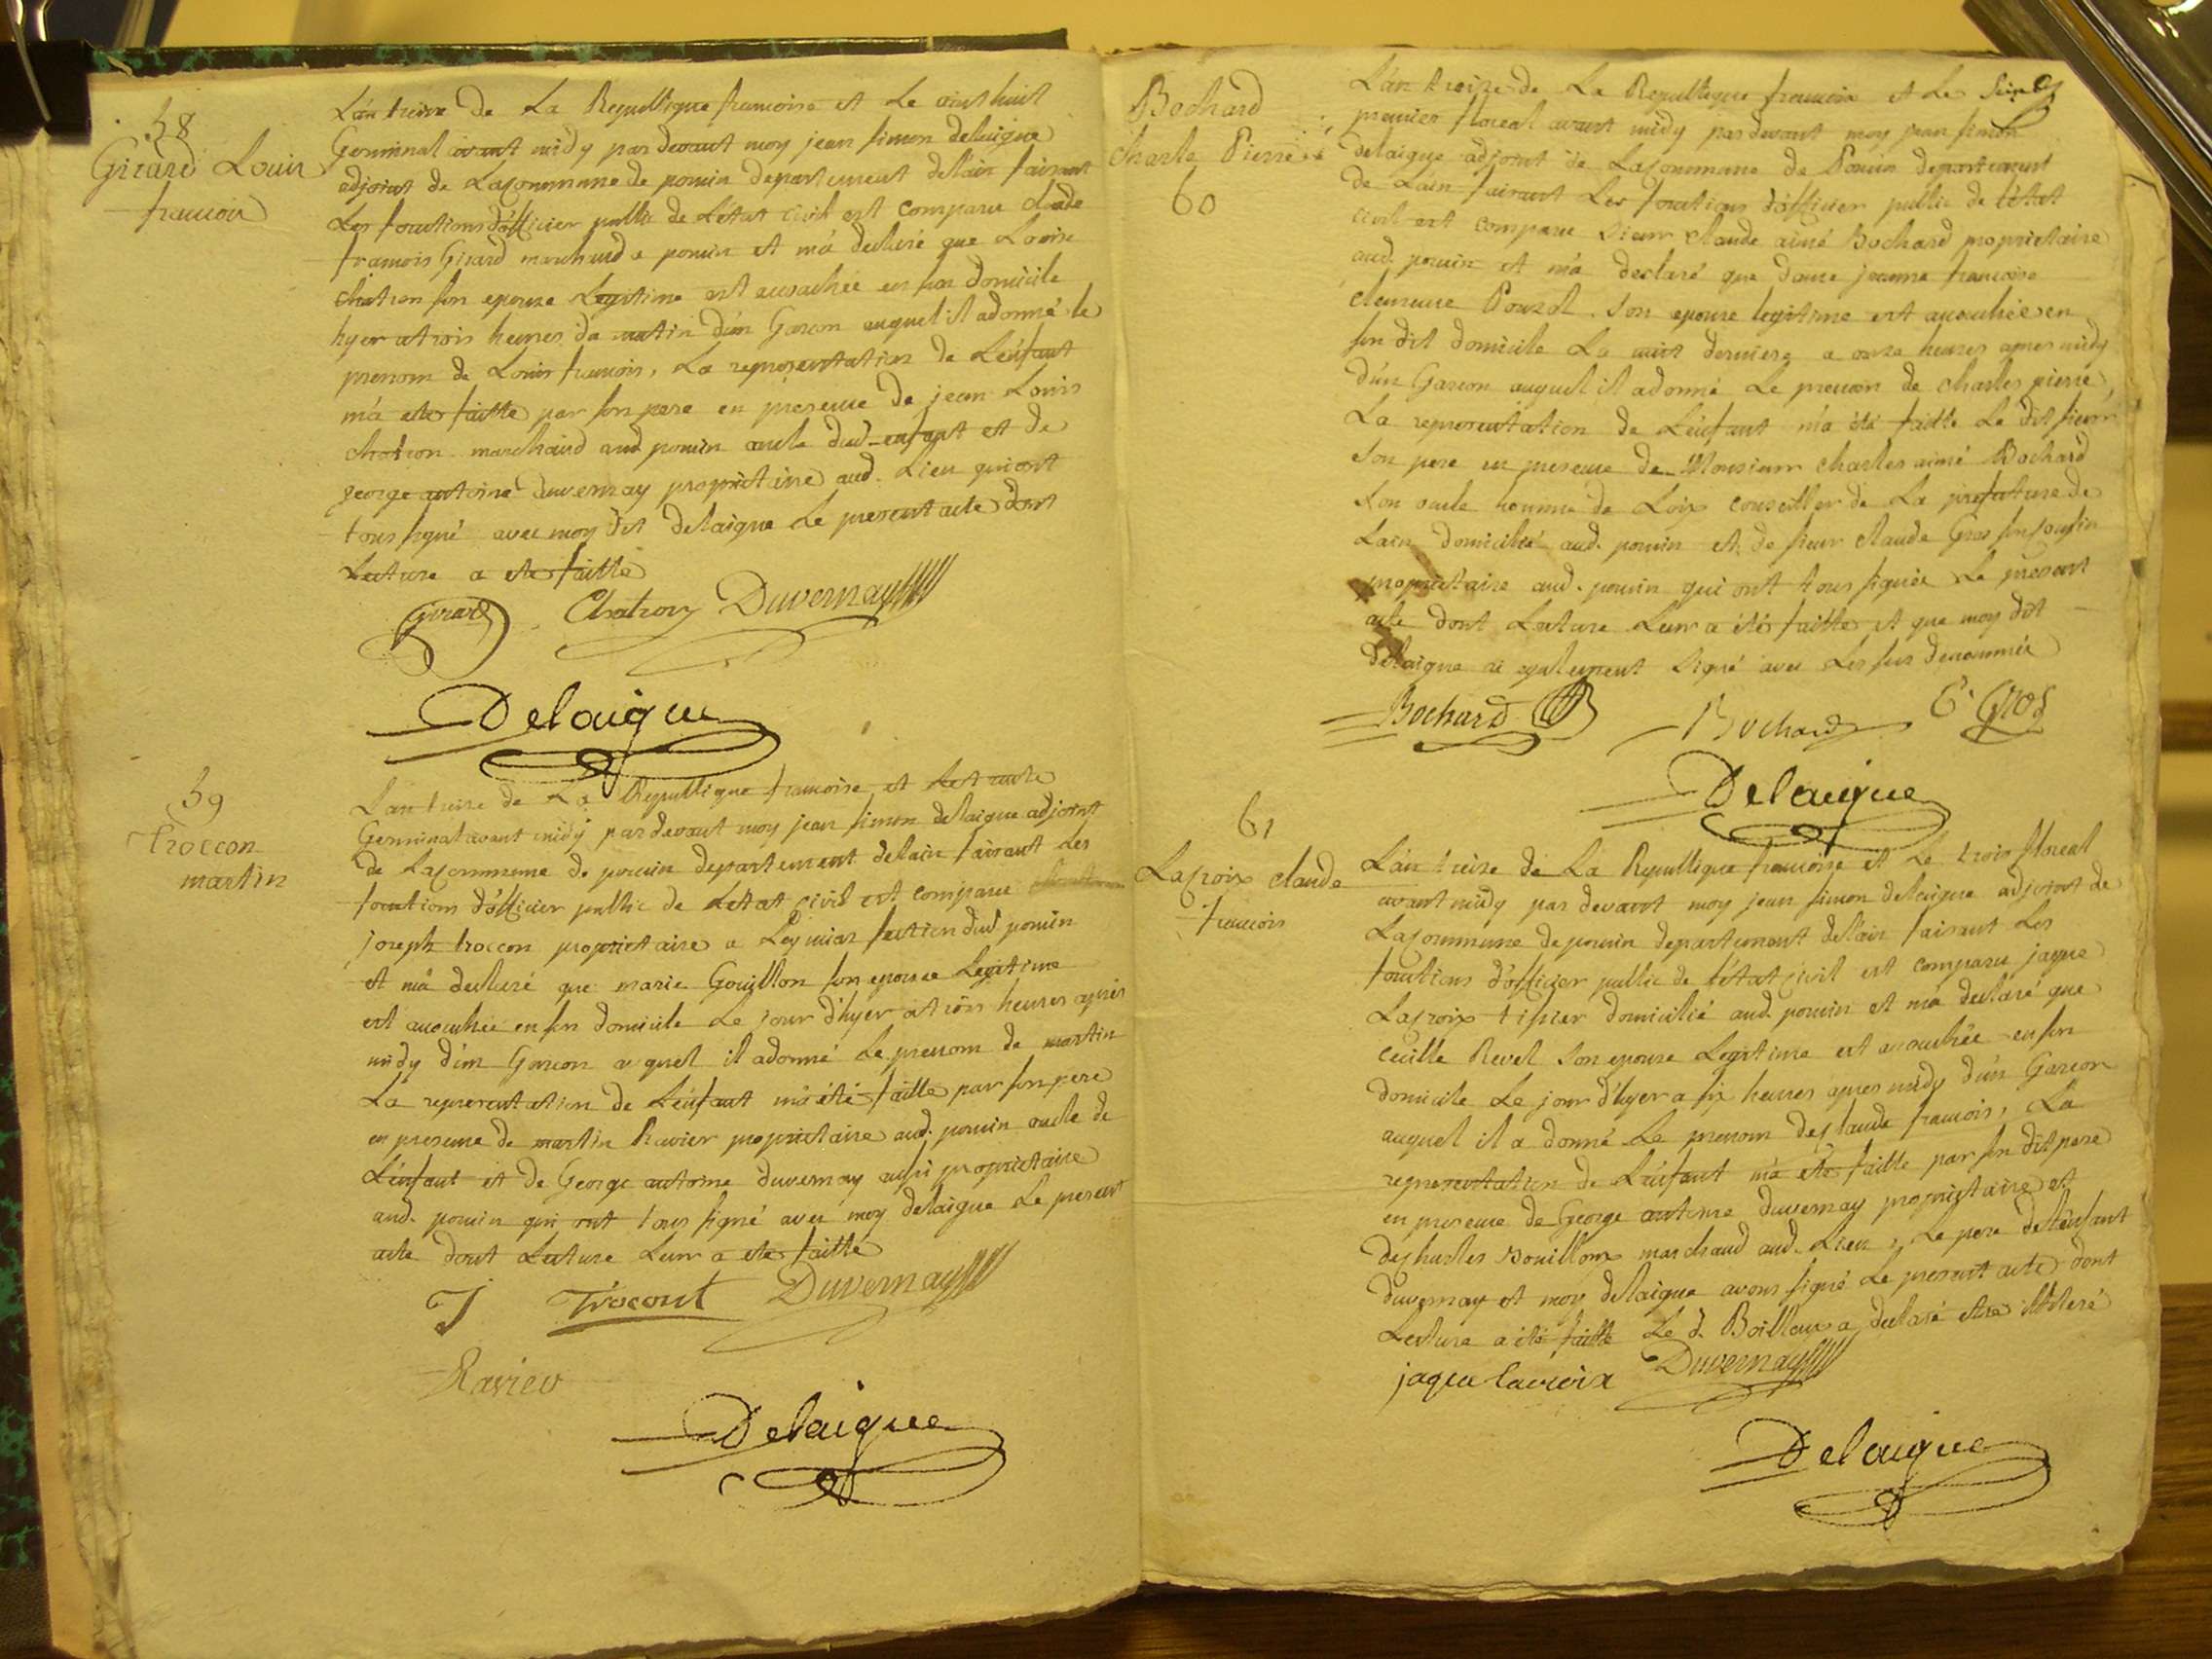 58
Girard Louis
francois
L'an treize de La Republique francoise et Le vint huit
Germinal avant midy par devant moy jean simon delaigue
adjoint de Lacommune de poncin departement delain faisant
Les fonctions d'officier public de L'état civil est comparu claude
francois Girard marchand a poncin et m'a declaré que Louise
chatron son epouse Legitime est accouchée en son domicile
hyer atrois heures du matin d'un Garcon auquel il adonné le
prenom de Louis francois, La representation de L'enfant
m'a eté faitte par son pere en presence de jean Louis
chatron marchand aud poncin oncle dud. enfant et de
george antoine duvernay propriétaire aud. Lieu qui ont
tous signé avec moy dit delaigue Le present acte dont
Lecture a eté faitte
Girard Chatron Duvernay
Delaigue
59
Troccon
martin
L'an treize de La Republique francoise et Le trente
Germinal avant midy par devant moy jean simon delaigue adjoint
de Lacommune de poncin departement delain faisant Les
fonctions d'officier public de L'etat civil est comparu
joseph troccon propriétaire a Leymiat section dud poncin
et m'a declaré que marie Gouillon son epouse Legitime
est accouchée en son domicile Le jour d'hyer atrois heures après
midy d'un Garcon a quel il adonné Le prenom de martin
La representation de L'enfant m'a été faitte par son pere
en presence de martin Ravier propriétaire aud. poncin oncle de
L'enfant et de George antoine duvernay aussi propriétaire
aud. poncin qui ont tous signé avec moy delaigue Le present
acte dont Lecture Leur a eté faitte
J Trocont Duvernay
Ravier
Delaigue
Bochard
charle Pierre
60
L'an treize de La Republique francoise et Le
premier floreal avant midy par devant moy jean simon
delaigue adjoint de Lacommune de Poncin departement
de L'ain faisant Les fonctions d'officier public de l'état
civil est comparu Sieur claude aimé Bochard propriétaire
aud. poncin et m'a declaré que dame jeanne francoise
clemence Pouzol son epouse legitime est accouchée en
son dit domicile La nuit derniere a onze heures apres midy
d'un Garcon auquel il adonné Le prenom de charles pierre
La representation de L'enfant m'a été faitte Le dit sieur
son pere en presence de Monsieur charles aimé Bochard
son oncle homme de Loix conseiller de La prefature de
Lain domicilié aud. poncin et de sieur claude Gros son cousin
propriétaire aud. poncin qui ont tous signés Le present
acte dont Lecture Leur a été faitte et que moy dit
delaigue ai egalement signé avec Les sus denommés
Bochard Bochard C. Gros
Delaigue
61
Lacroix claude
francois
L'an treize de La Republique francoise et Le trois floreal
avant midy par devant moy jean simon delaigue adjoint de
Lacommune de poncin departement delain faisant Les
fonctions d'officier public de l'état civil est comparu jaque
Lacroix tissier domicilié aud. poncin et m'a declaré que
cecille Revel son epouse Legitime est accouchée en son
domicile Le jour d'hyer a six heures apres midy d'un Garcon
auquel il a donné Le prenom declaude francois, La
representation de L'enfant m'a eté faitte par son dit pere
en presence de George antoine duvernay propriétaire et
decharles Bouilloux marchand aud. Lieu, Le pere del'enfant
duvernay et moy delaigue avons signé Le present acte dont
Lecture a été faitte Le d. Boilloux a declaré etre illiteré
jaque lacroix Duvernay
Delaigue